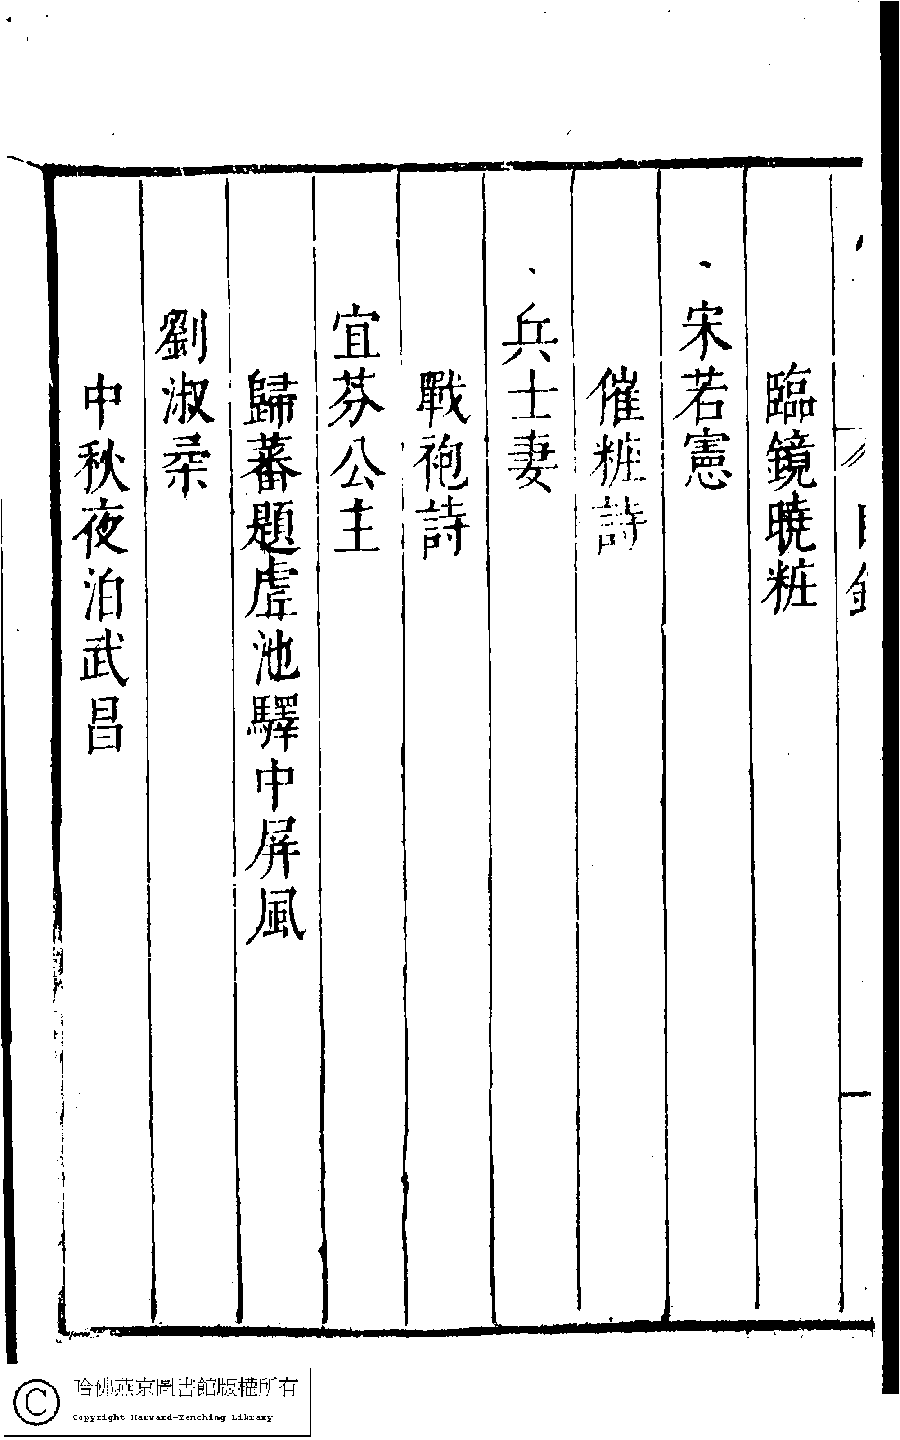 目錄
臨鏡曉粧
宋若憲
催粧詩
兵士妻
戰袍詩
宜芬公主
歸蕃題虗池驛中屏風
劉淑柔
中秋夜泊武昌
哈佛燕京圖書館版權所有
Copyright Harvard-Yenching Library